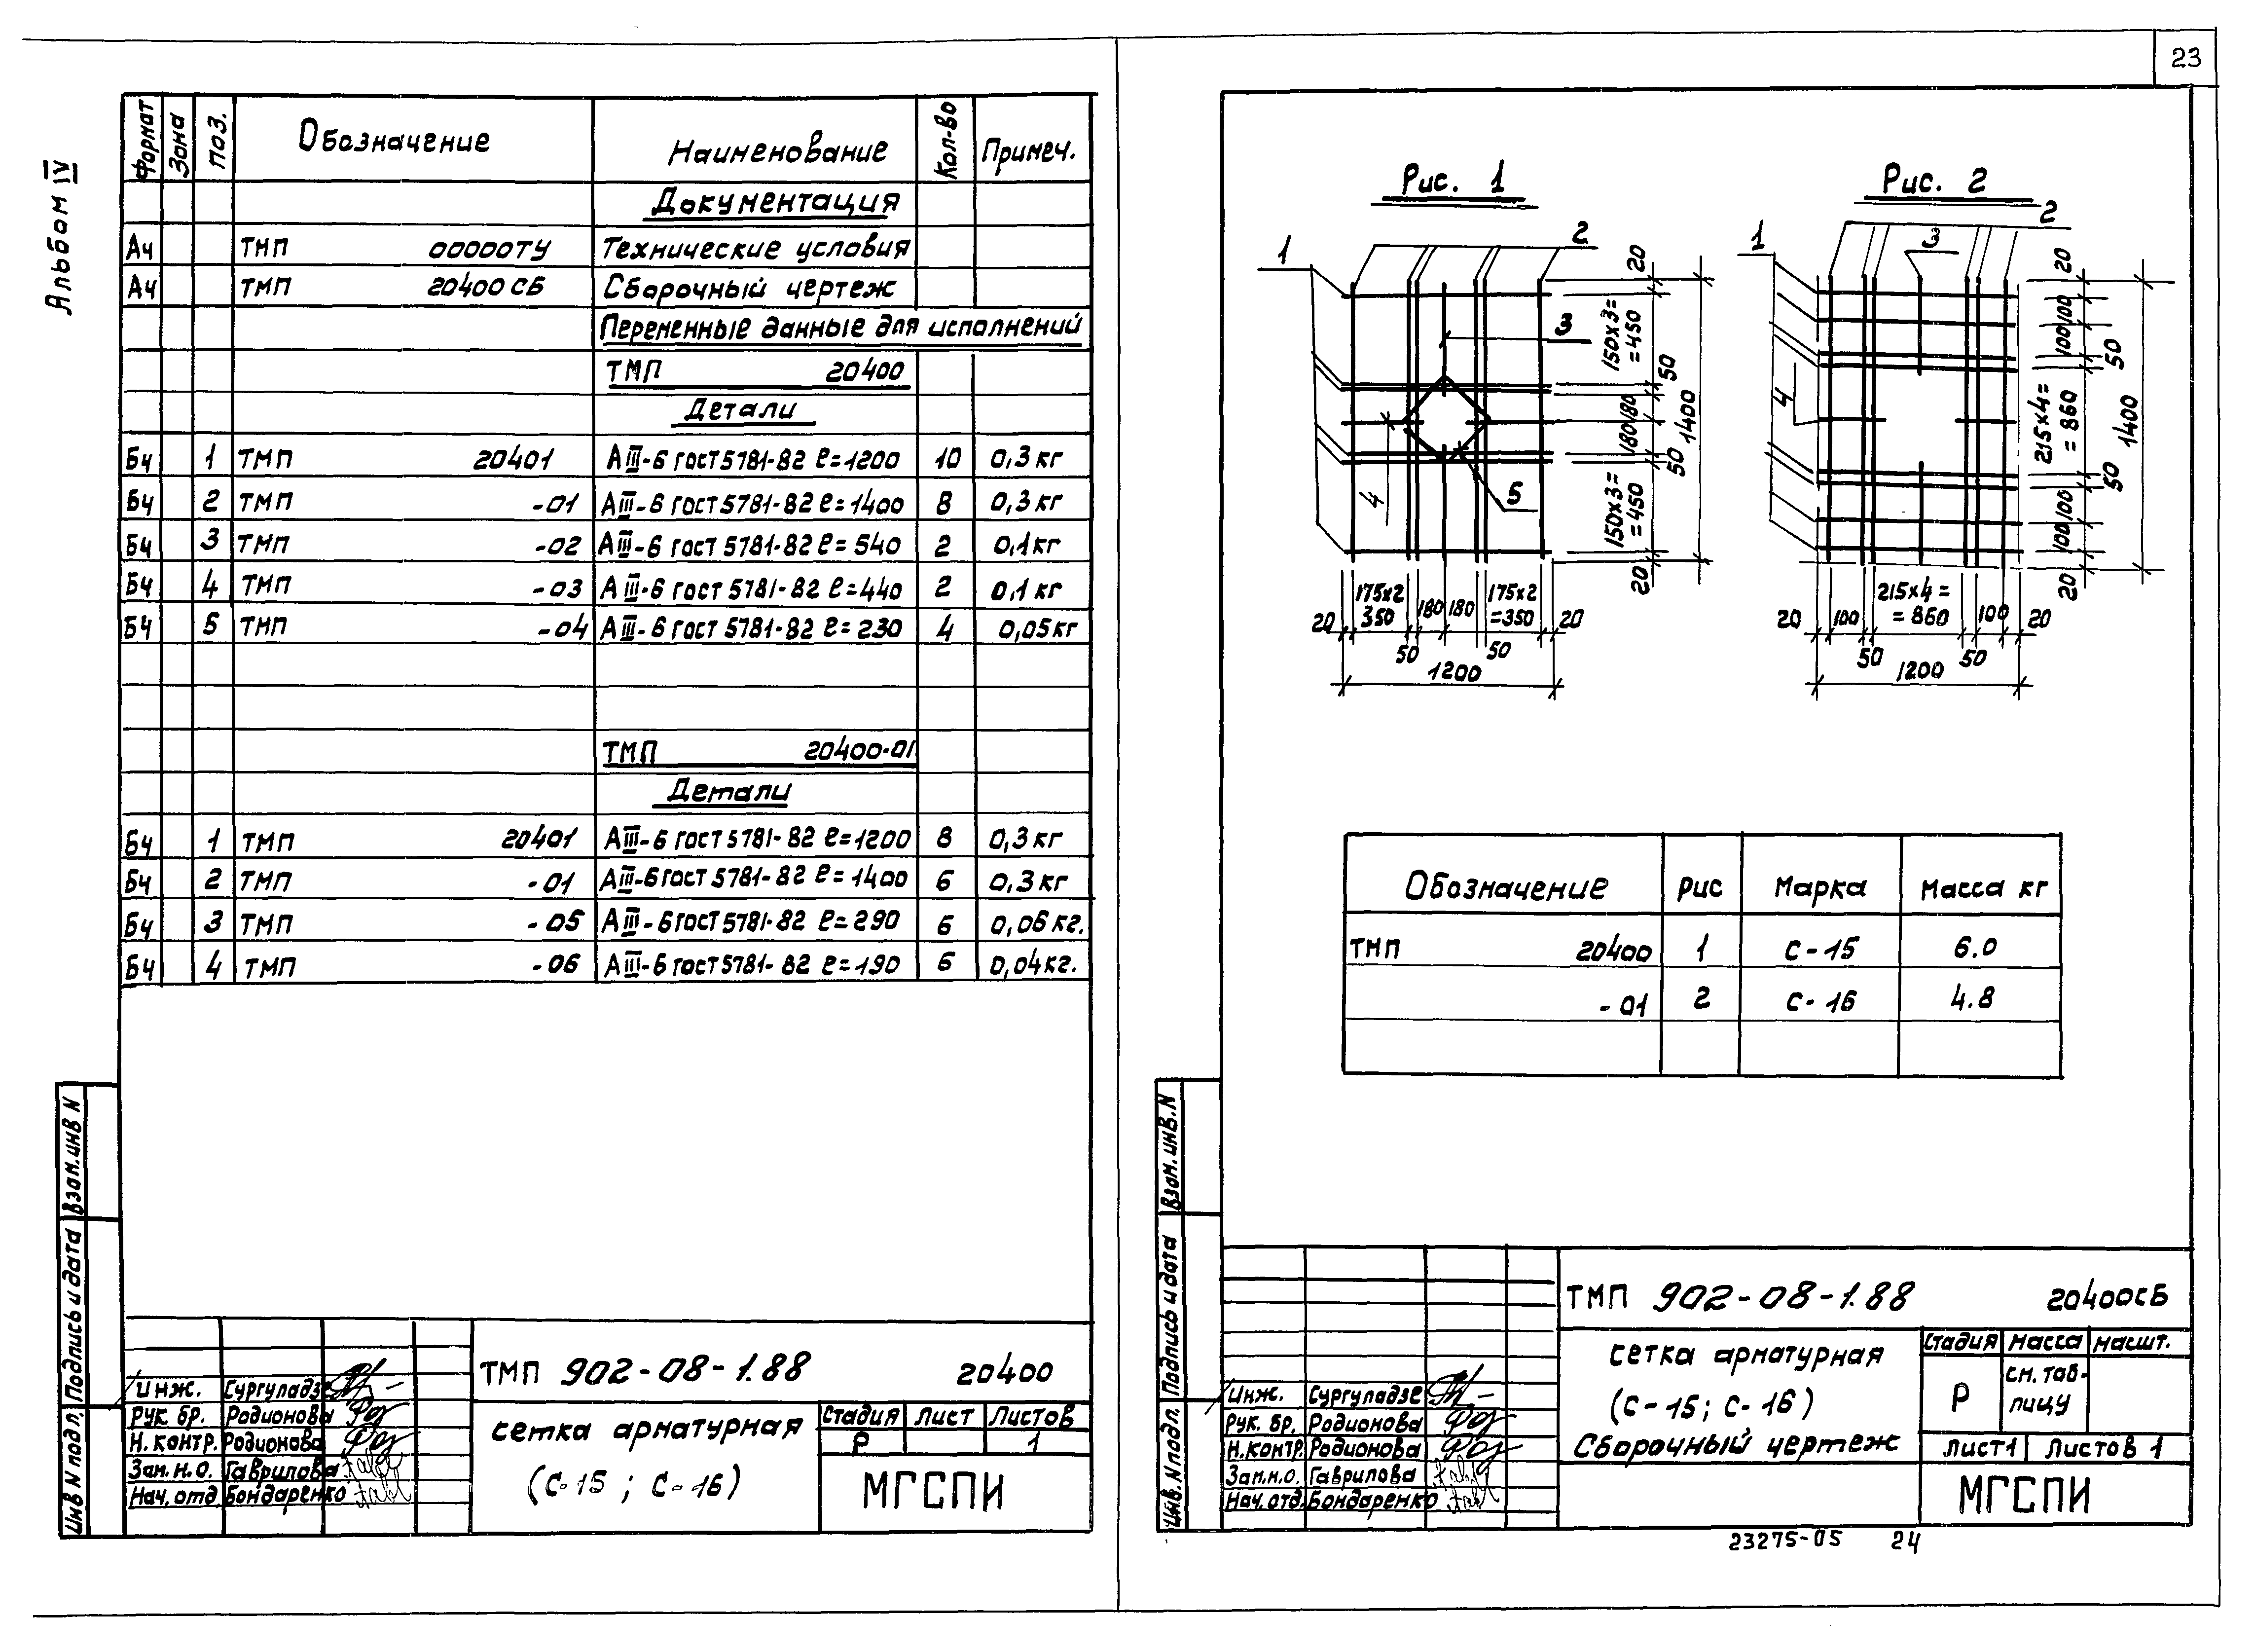 23
Альбом IV
Формат Зона Поз. Обозначение Наименование Кол-во Примеч.
Документация
А4 ТМП 00000ТУ Технические условия
А4 ТМП 20400 СБ Сборочный чертеж
Переменные данные для исполнений
ТМП 20400
Детали
Бч 1 ТМП 20401 АIII-6 ГОСТ 5781-82 ℓ=1200 10 0,3 кг
Бч 2 ТМП -01 АIII-6 ГОСТ 5781-82 ℓ=1400 8 0,3 кг
Бч 3 ТМП -02 АIII-6 ГОСТ 5781-82 ℓ=540 2 0,1 кг
Бч 4 ТМП -03 АIII-6 ГОСТ 5781-82 ℓ=440 2 0,1 кг
Бч 5 ТМП -04 АIII-6 ГОСТ 5781-82 ℓ=230 4 0,05 кг
ТМП 20400-01
Детали
Бч 1 ТМП 20401 АIII-6 ГОСТ 5781-82 ℓ=1200 8 0,3 кг
Бч 2 ТМП -01 АIII-6 ГОСТ 5781-82 ℓ=1400 6 0,3 кг
Бч 3 ТМП -05 АIII-6 ГОСТ 5781-82 ℓ=290 6 0,06 кг.
Бч 4 ТМП -06 АIII-6 ГОСТ 5781-82 ℓ=190 6 0,04 кг.
Инв N подл. Подпись и дата Взам.инв N
Инж. Сургуладзе
Рук бр. Родионова
Н. контр. Родионова
Зам.н.о. Гаврилова
Нач.отд Бондаренко
ТМП 902-08-1.88 20400
сетка арматурная
(С-15 ; С-16)
Стадия Лист Листов
Р 1
МГСПИ
Рис. 1
1 2 3 4 5
20
150х3=
=450
50
180 180
50
150х3=
=450
20
1400
20 175х2 350 50 180 180 50 175х2 =350 20
1200
Рис. 2
1 2 3 4
20
100 100
50
215х4=
=860
50
100 100
20
1400
20 100 50 215х4= =860 50 100 20
1200
Обозначение Рис Марка Масса кг
ТМП 20400 1 С-15 6.0
-01 2 С-16 4.8
Инв. N подл. Подпись и дата Взам. инв. N
Инж. Сургуладзе
Рук. бр. Родионова
Н.контр. Родионова
Зам.н.о. Гаврилова
Нач.отд. Бондаренко
ТМП 902-08-1.88 20400СБ
сетка арматурная
(С-15; С-16)
Сборочный чертеж
Стадия Масса Масшт.
Р см. таб-
лицу
Лист1 Листов 1
МГСПИ
23275-05 24